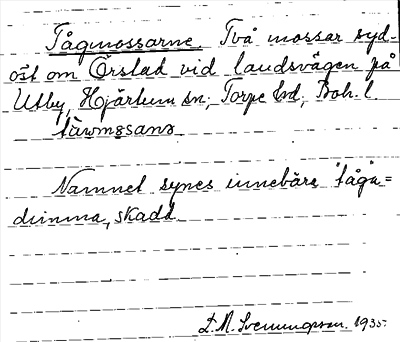 Tågmossarne. Två mossar syd-
ost om Örslad vid landsvägen på
Utby, Hjärtum sn; Torpe hd; Boh. l.
Namnet synes innebära tåga=
dimma, skadd.
S. M. Svenungsson. 1935.